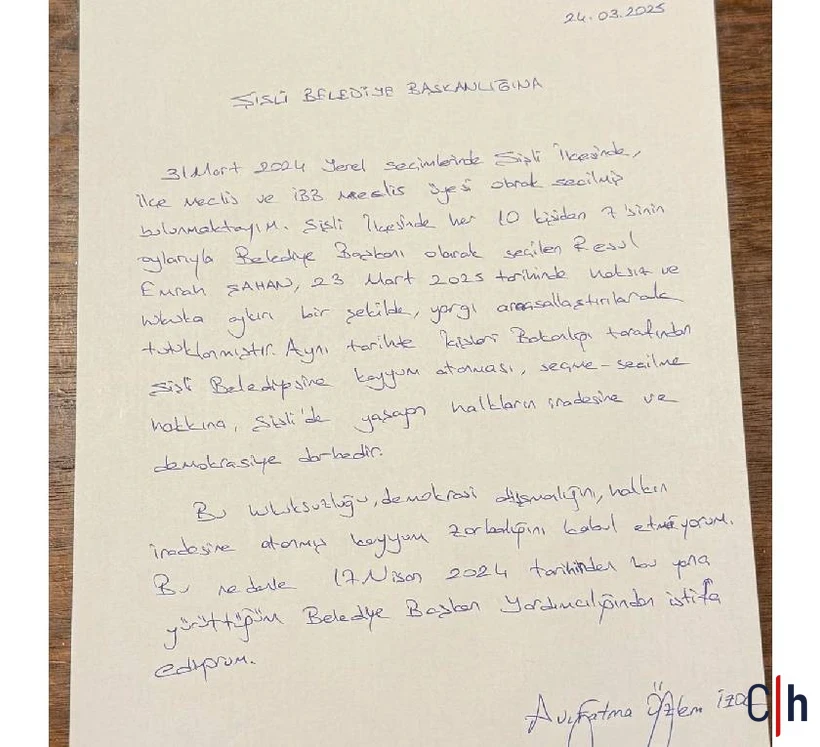 24.03.2025
ŞİŞLİ BELEDİYE BAŞKANLIĞINA
31 Mart 2024 Yerel seçimlerinde Şişli İlçesinde,
İlçe Meclis ve İBB Meclis üyesi olarak seçilmiş
bulunmaktayım. Şişli İlçesinde her 10 kişiden 7'sinin
oylarıyla Belediye Başkanı olarak seçilen Resul
Emrah ŞAHAN, 23 Mart 2025 tarihinde haksız ve
hukuka aykırı bir şekilde, yargı araçsallaştırılarak
tutuklanmıştır. Aynı tarihte İçişleri Bakanlığı tarafından
Şişli Belediyesine kayyum atanması, seçme-seçilme
hakkına, Şişli'de yaşayan halkların iradesine ve
demokrasiye darbedir.
Bu hukuksuzluğu, demokrasi düşmanlığını, halkın
iradesine atanmış kayyum zorbalığını kabul etmiyorum.
Bu nedenle 17 Nisan 2024 tarihinden bu yana
yürüttüğüm Belediye Başkan Yardımcılığından istifa
ediyorum.
Av. Fatma Özlem
C|h